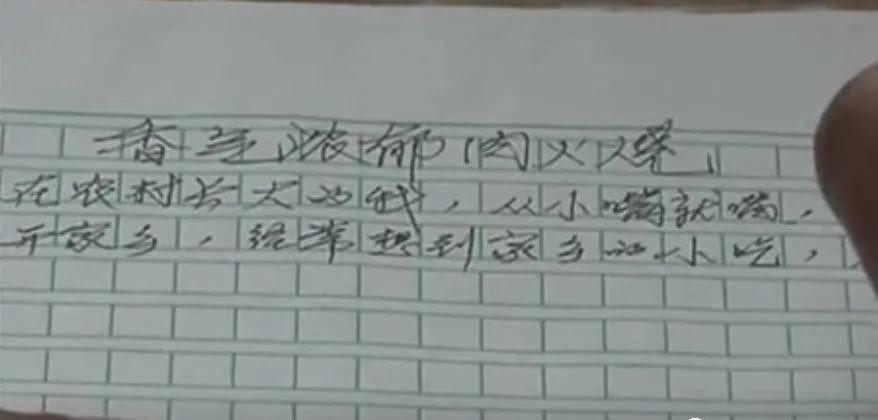 香气浓郁肉火烧
在农村长大的我，从小嘴就嘴，
开家乡，经常想到家乡的小吃，